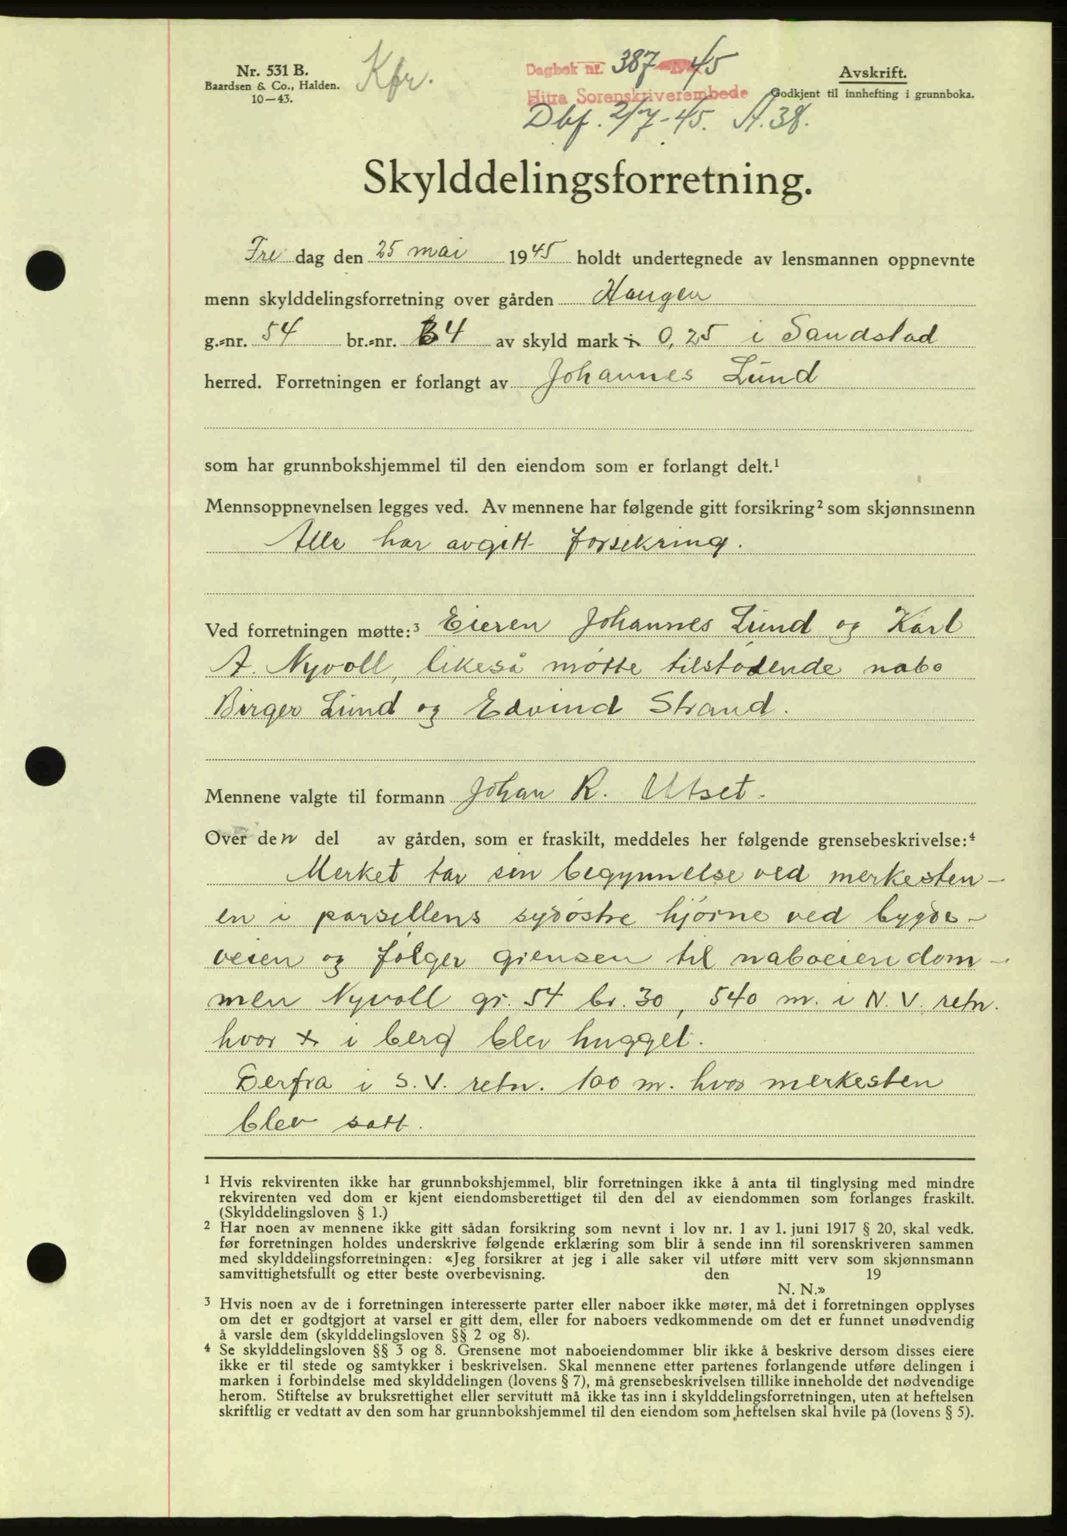 Nr. 531 B.
Baardsen & Co., Halden.
10—43.
Kfr.
Dagbok nr. 387 45
Hitra Sorenskriverembede
Dbf. 2/7-45. A.38.
Avskrift.
Godkjent til innhefting i grunnboka.
Skylddelingsforretning.
Fre dag den 25 mai 1945 holdt undertegnede av lensmannen oppnevnte
menn skylddelingsforretning over gården Haugen
g.-nr. 54 br.-nr. 4 av skyld mark 0,25 i Sandstad
herred. Forretningen er forlangt av Johannes Lund
som har grunnbokshjemmel til den eiendom som er forlangt delt.¹
Mennsoppnevnelsen legges ved. Av mennene har følgende gitt forsikring² som skjønnsmenn
Alle har avgitt forsikring.
Ved forretningen møtte:³ Eieren Johannes Lund og Karl
A. Nyvoll, likeså møtte tilstødende nabo
Birger Lund og Edvind Strand.
Mennene valgte til formann Johan R. Utset.
Over den del av gården, som er fraskilt, meddeles her følgende grensebeskrivelse:⁴
Merket tar sin begynnelse ved merkesten-
en i parsellens sydøstre hjørne ved bygde-
veien og følger grensen til naboeiendom-
men Nyvoll gr. 54 br. 30, 540 m. i N.V. retn.
hvor x i berg blev hugget.
Derfra i S.V. retn. 100 m. hvor merkesten
blev satt.
¹ Hvis rekvirenten ikke har grunnbokshjemmel, blir forretningen ikke å anta til tinglysing med mindre
rekvirenten ved dom er kjent eiendomsberettiget til den del av eiendommen som forlanges fraskilt.
(Skylddelingsloven § 1.)
² Har noen av mennene ikke gitt sådan forsikring som nevnt i lov nr. 1 av 1. juni 1917 § 20, skal vedk.
før forretningen holdes underskrive følgende erklæring som blir å sende inn til sorenskriveren sammen
med skylddelingsforretningen: «Jeg forsikrer at jeg i alle saker vil utføre mitt verv som skjønnsmann
samvittighetsfullt og etter beste overbevisning. den 19
N. N.»
³ Hvis noen av de i forretningen interesserte parter eller naboer ikke møter, må det i forretningen opplyses
om det er godtgjort at varsel er gitt dem, eller for naboers vedkommende om det er funnet unødvendig
å varsle dem (skylddelingsloven §§ 2 og 8).
⁴ Se skylddelingsloven §§ 3 og 8. Grensene mot naboeiendommer blir ikke å beskrive dersom disses eiere
ikke er til stede og samtykker i beskrivelsen. Skal mennene etter partenes forlangende utføre delingen i
marken i forbindelse med skylddelingen (lovens § 7), må grensebeskrivelsen tillike inneholde det nødvendige
herom. Stiftelse av bruksrettighet eller servitutt må ikke tas inn i skylddelingsforretningen, uten at heftelsen
skriftlig er vedtatt av den som har grunnbokshjemmel til den eiendom som heftelsen skal hvile på (lovens § 5).